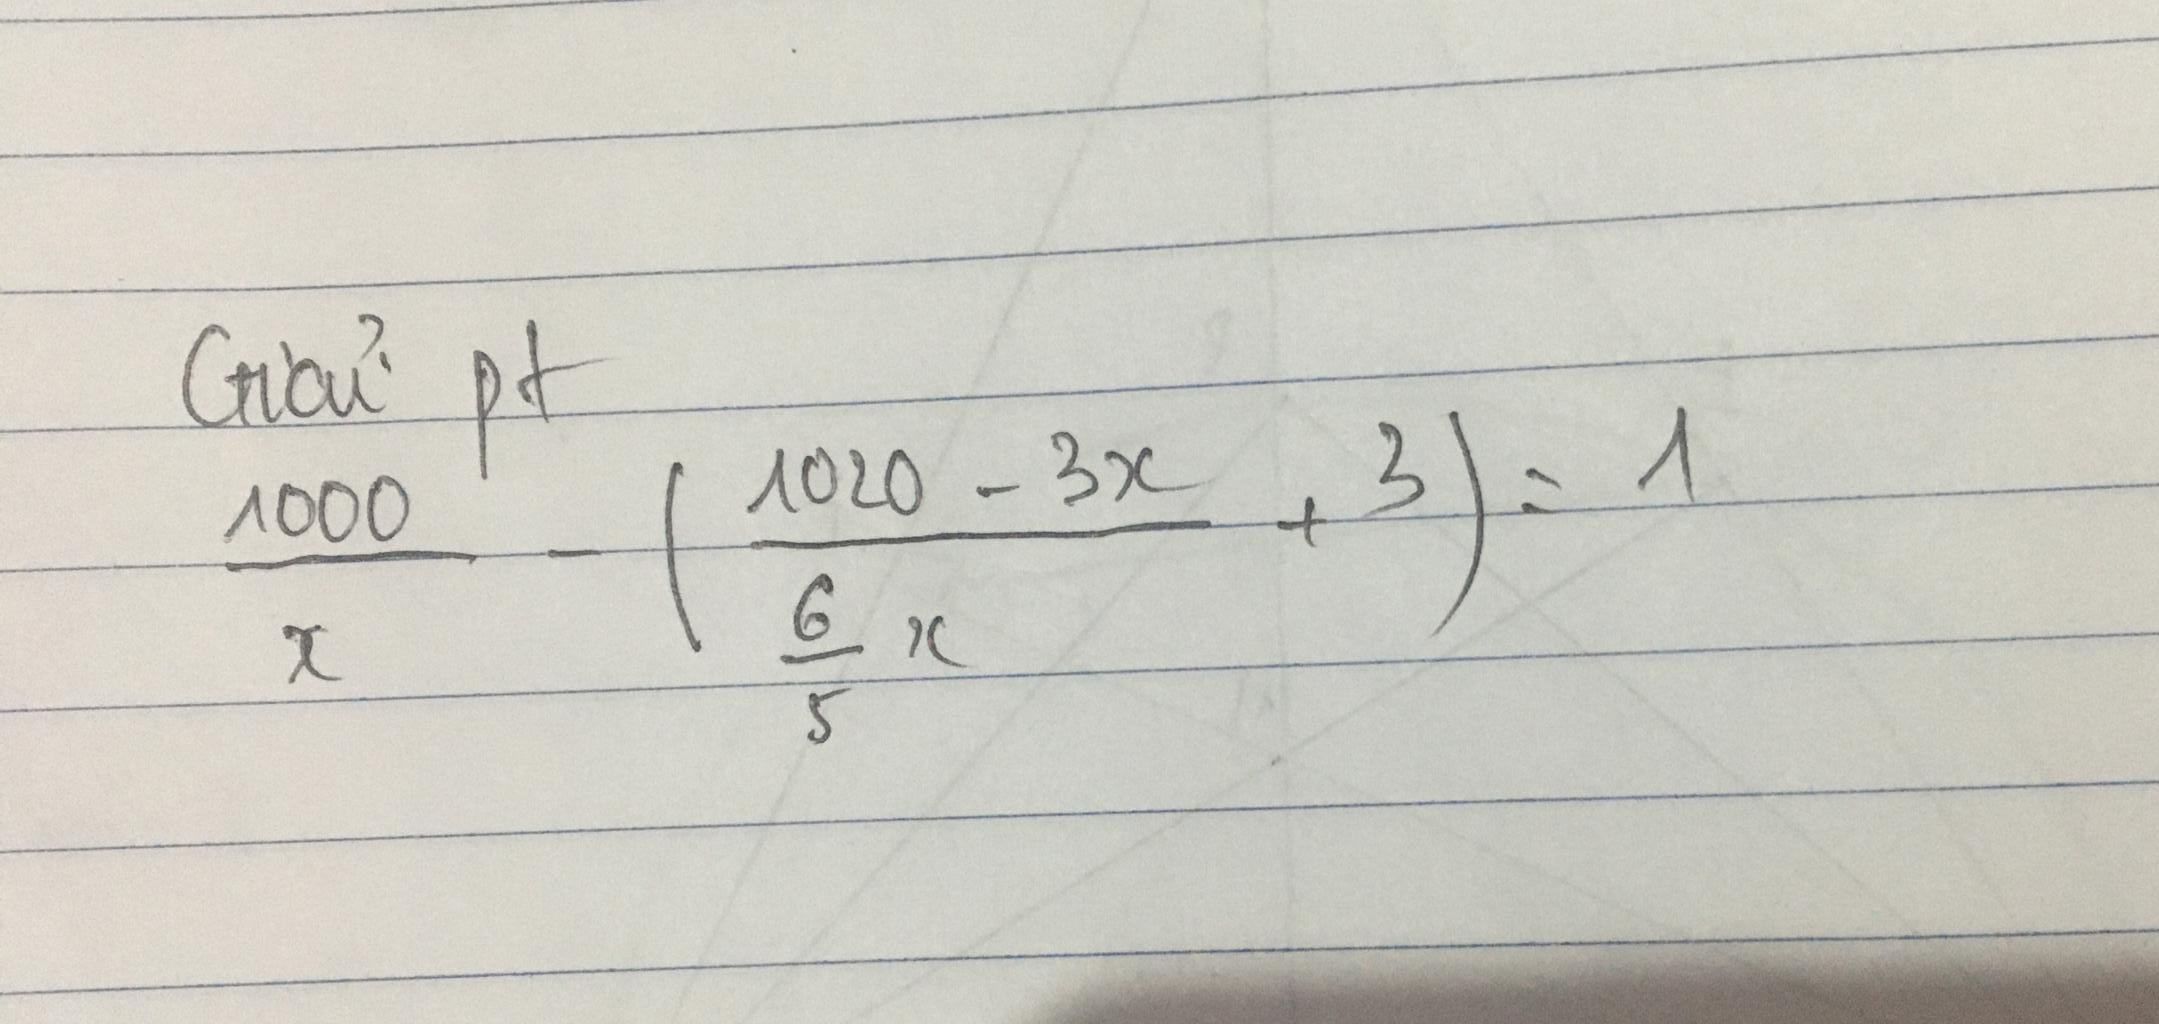 Giải pt
1000/x - ( (1020 - 3x)/(6/5 x) + 3 ) = 1